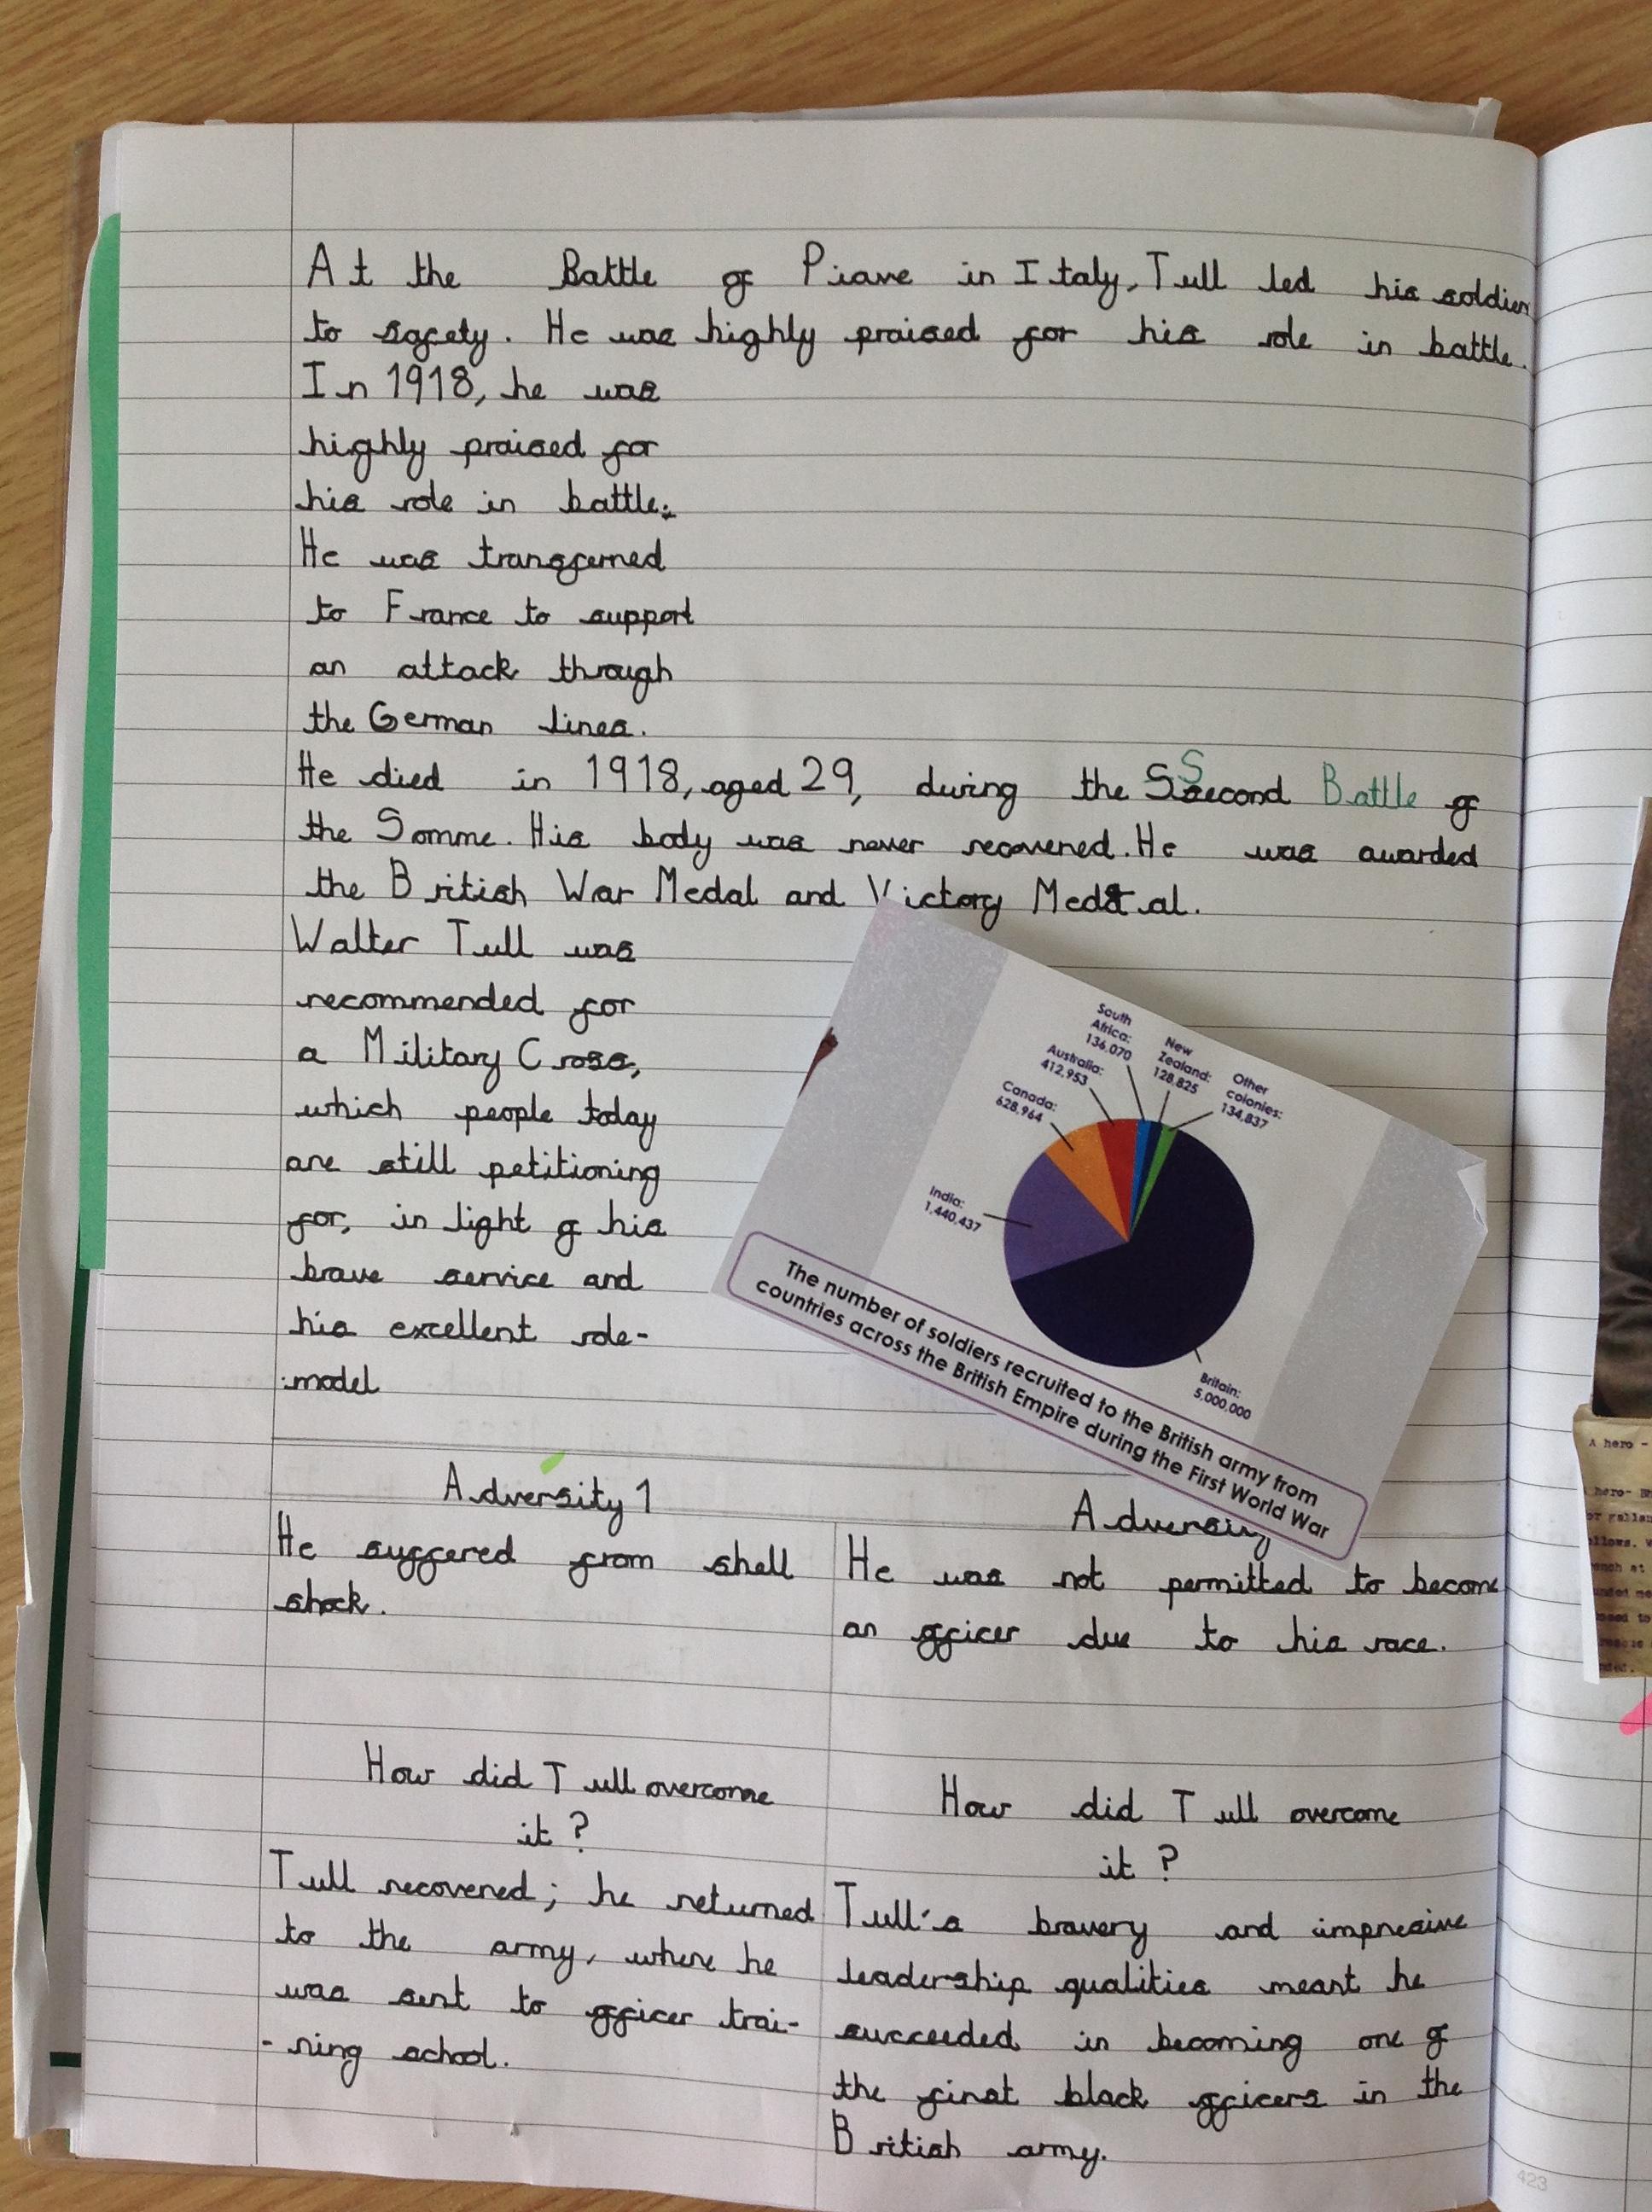 At the Battle of Piave in Italy, Tull led his soldiers
to safety. He was highly praised for his role in battle.
In 1918, he was
highly praised for
his role in battle.
He was transferred
to France to support
an attack through
the German lines.
He died in 1918, aged 29, during the Second Battle of
the Somme. His body was never recovered. He was awarded
the British War Medal and Victory Medal.
Walter Tull was
recommended for
a Military Cross,
which people today
are still petitioning
for, in light of his
brave service and
his excellent role-
model
South
Africa:
136,070
New
Zealand:
128,825
Other
colonies:
134,837
Australia:
412,953
Canada:
628,964
India:
1,440,437
Britain:
5,000,000
The number of soldiers recruited to the British army from
countries across the British Empire during the First World War
Adversity 1
He suffered from shell
shock.
How did Tull overcome
it?
Tull recovered; he returned
to the army, where he
was sent to officer trai-
-ning school.
Adversity
He was not permitted to become
an officer due to his race.
How did Tull overcome
it?
Tull's bravery and impresive
leadership qualities meant he
succeeded in becoming one of
the first black officers in the
British army.
A hero -
hero-
423